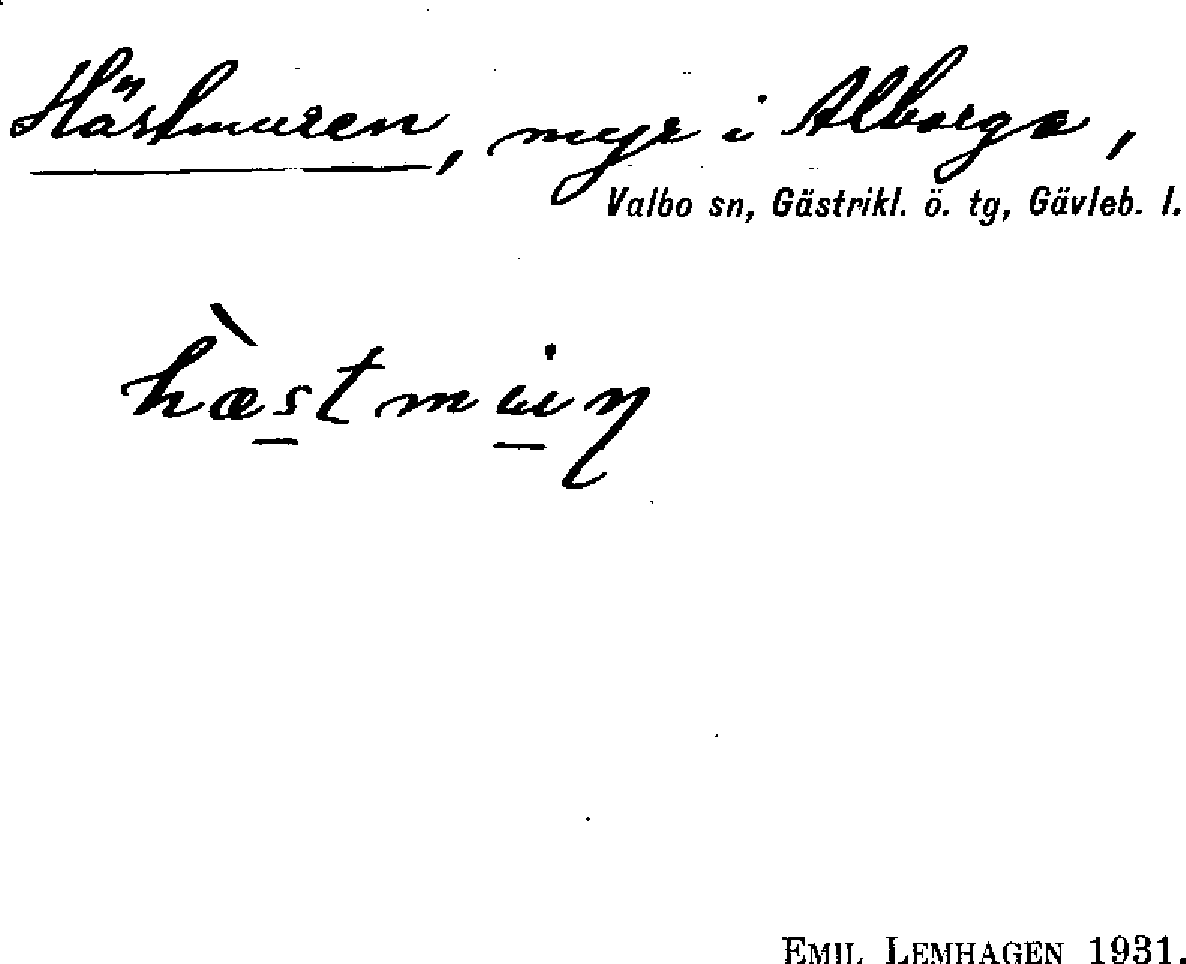 Hästmuren, myr i Alborga,
Valbo sn, Gästrikl. ö. tg, Gävleb. l.
EMIL LEMHAGEN 1931.